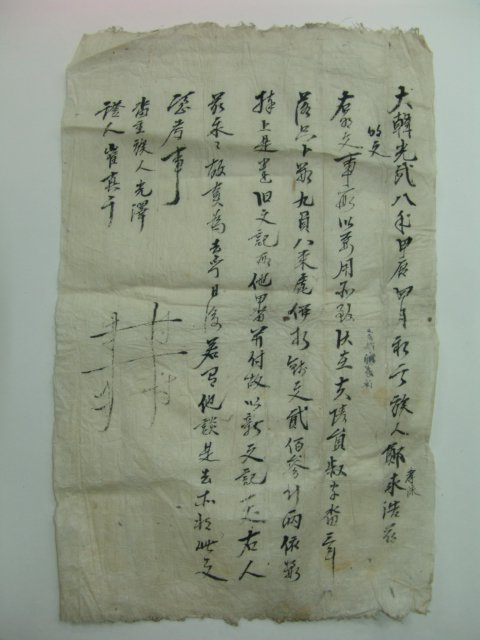 大韓光武八年甲辰四月初 族人鄭永浩前
明文
右明文事段以要用所致伏在 員 字畓三斗
落只卜數九負八束庫價折錢文貳佰參拾兩依數
捧上是遣旧文記段他田畓并付故以新文記一丈右人
前永永放賣爲去乎日後若有他談是去等持此文
憑考事
畓主族人光澤
證人崔 千